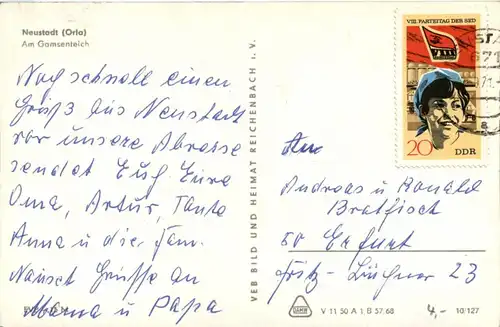 Neustadt (Orla)
Am Gamsenteich
Noch schnell einen
Gruß aus Neustadt
vor unsere Abreise
sendet Euch Eure
Oma, Artur, Tante
Anna u die Fam.
Gruße an
Mama u Papa
VEB BILD UND HEIMAT REICHENBACH i. V.
VIII. PARTEITAG DER SED
20
DDR
An
Andreas u Ronald
Bratfisch
50 Erfurt
Fritz-Büchner 23
V 11 50 A 1 B 57/68
4,-
10/127